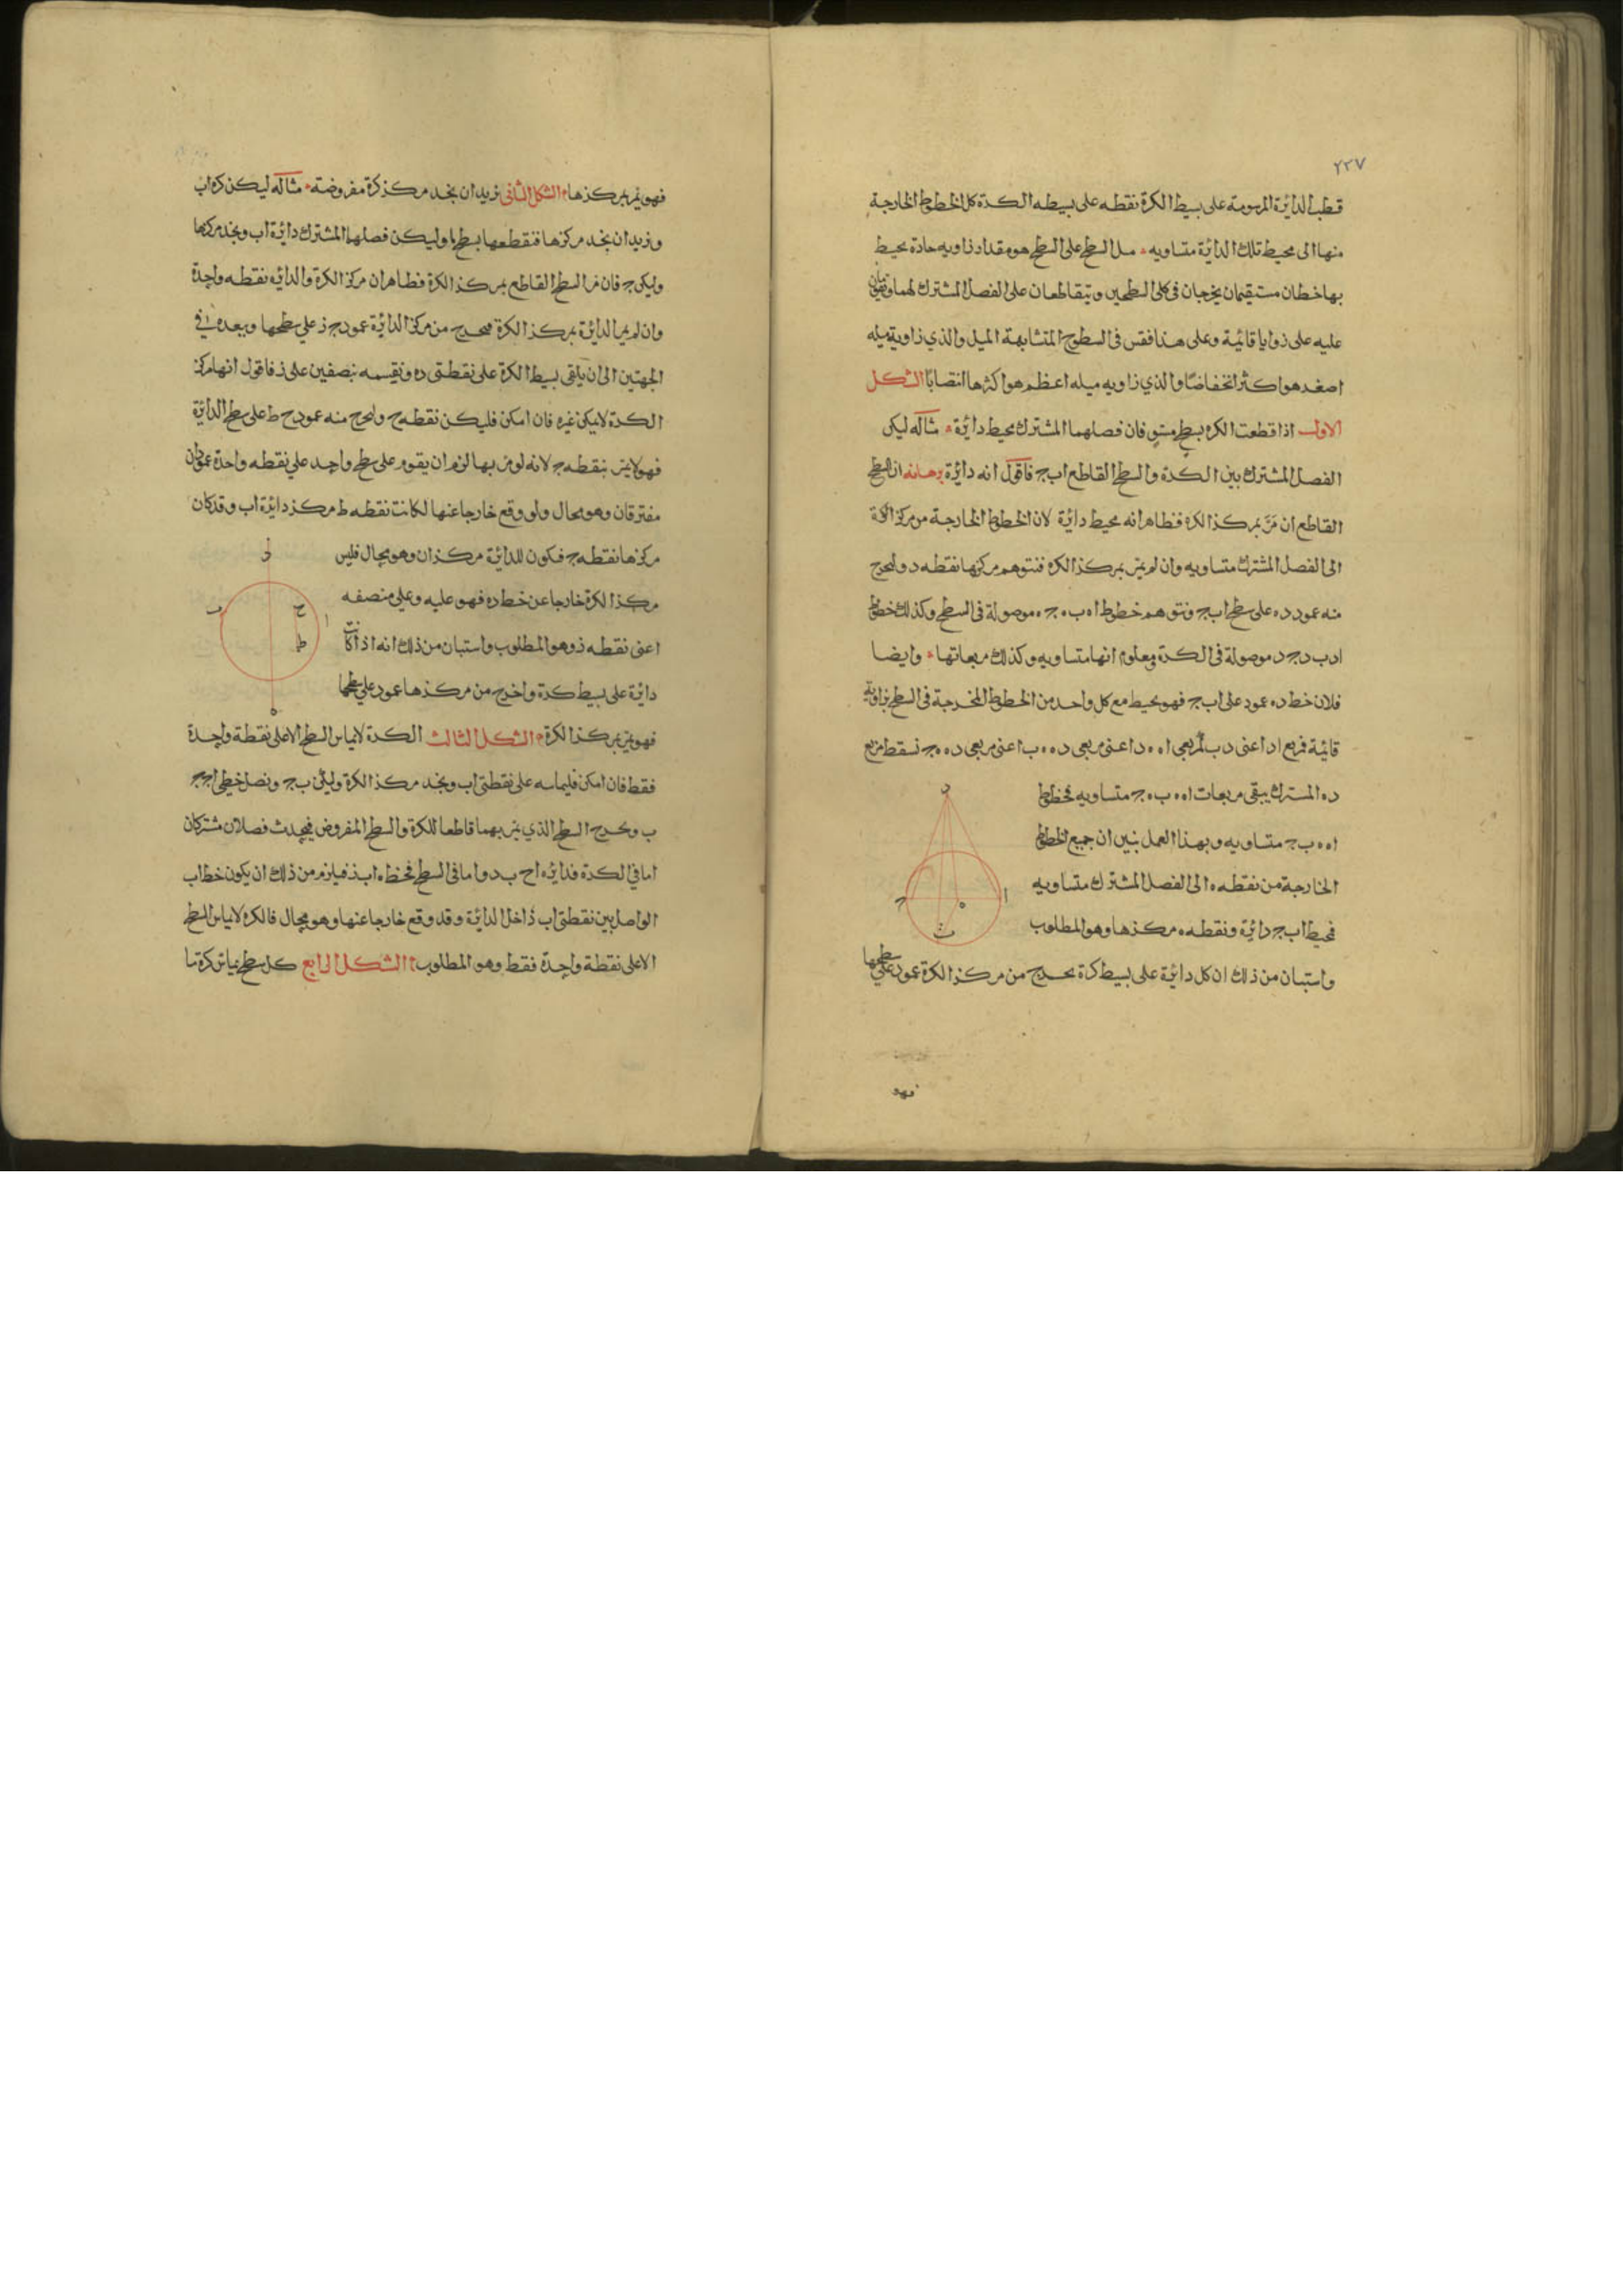 ٢٢٧
قطب الدائرة المرسومة على بسيط الكرة نقطه على بسيطه الكرة كل الخطوط الخارجة
منها الى محيط تلك الدائرة متساويه مىل السطح على السطح هو مقدار زاويه حادة يحيط
بها خطان مستقيمان يخرجان فى كلى السطحين ويتقاطعان على الفصل المشترك لهما
عليه على زوايا قائمة وعلى هذا فقس فى السطوح المتشابهة الميل والذي زاوية ميله
اصغر هو اكثر انخفاضا والذي زاويه ميله اعظم هو اكثرها انتصابا الشكل
الاول اذا قطعت الكره بسطح مستو فان فصلهما المشترك محيط دائرة مثاله ليكن
الفصل المشترك بين الكرة والسطح القاطع اب ج فاقول انه دائرة برهانه ان السطح
القاطع ان مر بمركز الكره فظاهر انه محيط دائرة لان الخطوط الخارجة من مركز الكرة
الى الفصل المشترك متساويه وان لم يمر بمركز الكره فنتوهم مركزها نقطه د وليخرج
منه عمود ده على سطح اب ج ونتوهم خطوط اه به جه موصولة فى السطح وكذلك خطوط
اد بد جد موصولة فى الكرة ومعلوم انها متساويه وكذلك مربعاتها وايضا
فلان خط ده عمود على اب ج فهو يحيط مع كل واحد من الخطوط المخرجة فى السطح بزاوية
قائمة فمربع اد اعنى دب لمربعى اه ه د اعنى مربعى ده ه ب اعنى مربعى ده ه ج نسقط مربع
ده المشترك يبقى مربعات اه ه ب ه ج متساويه فخطوط
اه ه ب ج متساويه وبهذا العمل نبين ان جميع الخطوط
الخارجة من نقطه ه الى الفصل المشترك متساويه
فمحيط اب ج دائرة ونقطه ه مركزها وهو المطلوب
واستبان من ذلك ان كل دائرة على بسيط كرة يخرج من مركز الكرة عمود على سطحها
د
ا
ه
ج
ب
فهو
فهو يمر بمركزها الشكل الثانى نريد ان نجد مركز كرة مفروضة مثاله ليكن كره اب
ونريد ان نجد مركزها فنقطعها بسطح ما وليكن فصلهما المشترك دائرة اب ونجد مركزها
وليكن ج فان مر السطح القاطع بمركز الكرة فظاهر ان مركز الكرة والدائره نقطه واحدة
وان لم يمر الدائرة بمركز الكرة فنخرج من مركز الدائرة عمود ج ز على سطحها وببعده فى
الجهتين الى ان يلقى بسيط الكرة على نقطتى ده ونقسمه بنصفين على ز فاقول انها مركز
الكرة لا يمكن غيره فان امكن فليكن نقطه ح وليخرج منه عمود ح ط على سطح الدائرة
فهو لا يمر بنقطه ج لانه لو مر بها لزم ان يقوم على سطح واحد على نقطه واحدة عمودان
مفترقان وهو محال ولو وقع خارجا عنها لكانت نقطه ط مركز دايرة اب وقد كان
مركزها نقطه ج فيكون للدائرة مركزان وهو محال فليس
مركز الكرة خارجا عن خط ده فهو عليه وعلى منصفه
اعنى نقطه ز وهو المطلوب واستبان من ذلك انه اذا كانت
دائرة على بسيط كرة واخرج من مركزها عمود على سطحها
د
ب
ح
ا
ط
ه
فهو يمر بمركز الكرة الشكل الثالث الكرة لا يماس السطح الا على نقطة واحدة
فقط فان امكن فليماسه على نقطتى اب ونجد مركز الكرة وليكن ج ونصل خطى اج ج
ب ونخرج السطح الذي يمر بهما قاطعا للكرة والسطح المفروض فيحدث فصلان مشتركان
اما فى الكرة فدائره اح ب د واما فى السطح فخط ه اب ز فيلزم من ذلك ان يكون خط اب
الواصل بين نقطتى اب داخل الدائرة وقد وقع خارجا عنها وهو محال فالكره لا يماس السطح
الا على نقطة واحدة فقط وهو المطلوب الشكل الرابع كل سطح يماس كرة ما